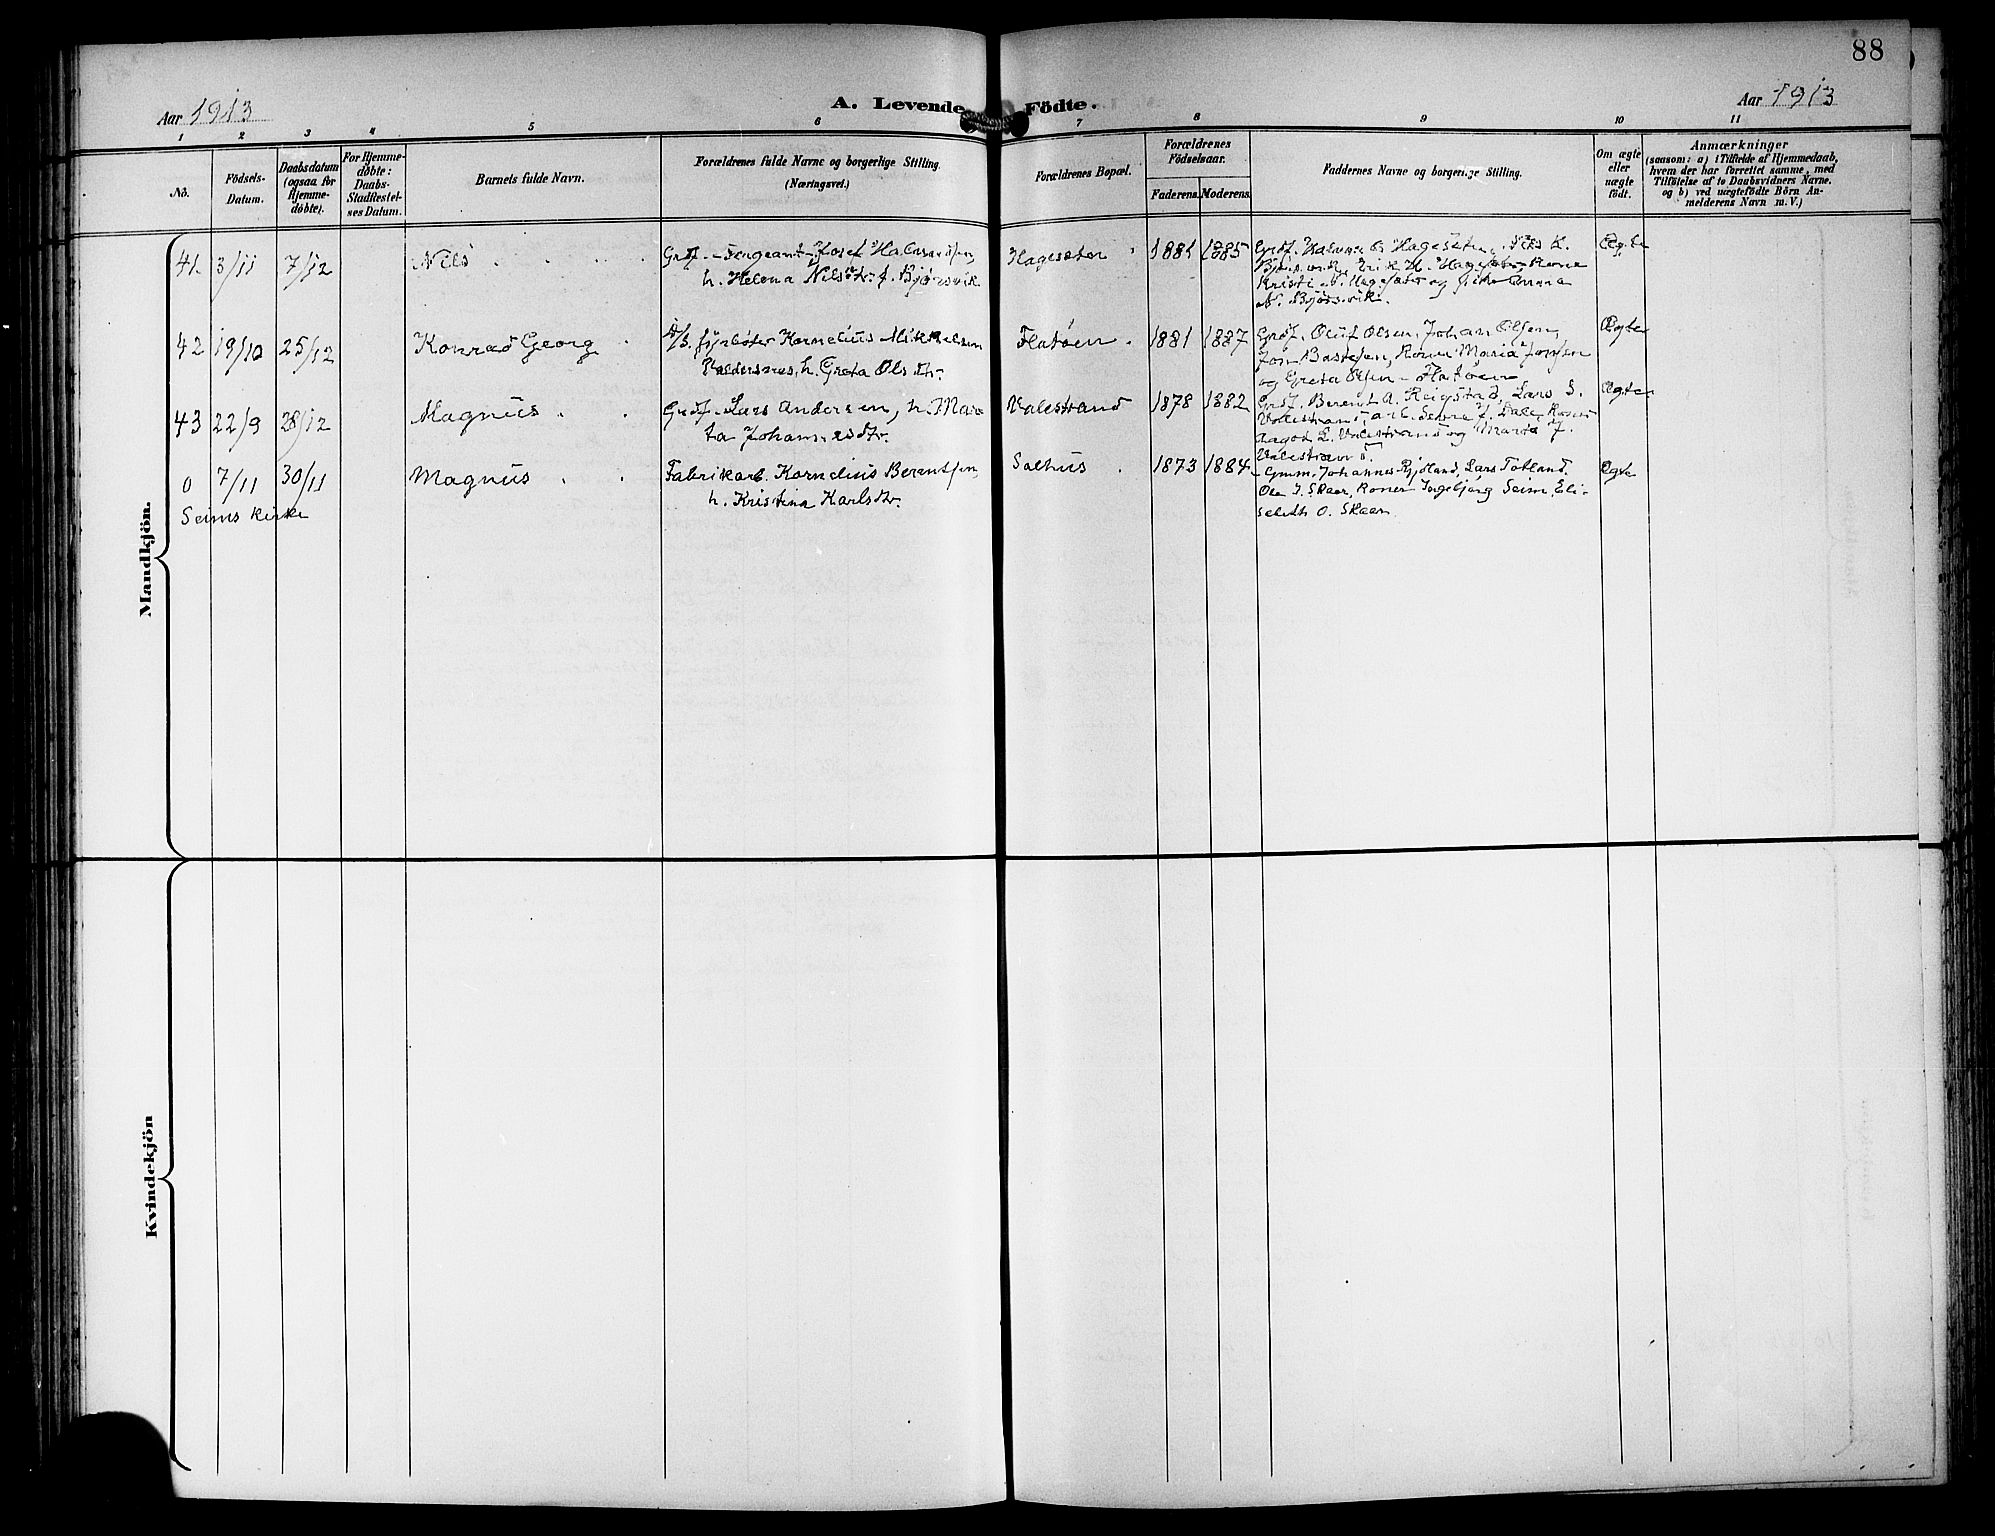 88
Aar 1913
A. Levende Födte.
Aar 1913
1 2 3 4 5 6 7 8 9 10 11
No.
Födsels-
Datum.
Daabsdatum
(ogsaa for
Hjemme-
døbte).
For Hjemme-
døbte:
Daabs-
Stadfæstel-
ses Datum.
Barnets fulde Navn.
Forældrenes fulde Navne og borgerlige Stilling.
(Næringsvei.)
Forældrenes Bopæl.
Forældrenes
Födselsaar.
Faderens. Moderens.
Faddernes Navne og borgerlige Stilling.
Om ægte
eller
uægte
födt.
Anmærkninger
(saasom: a) i Tilfælde af Hjemmedaab,
hvem der har forrettet samme, med
Tilföielse af to Daabsvidners Navne,
og b) ved uægtefödte Börn An-
melderens Navn m. V.)
Mandkjön.
41 3/11 7/12 Nils
Grdf. - Sergeant - Josef
h. Helena Nilsdtr. f. Bjørsvik
Hageseter 1881 1885
Grdf. Hageseter, Nils K.
Erik H. Kone
Kristi Hageseter og
N. Bjørsvik.
Ægte
42 19/10 25/12 Konrad Georg
fyrbøter Kornelius Mikkelsen
h. Greta Olsdtr.
Flatøen. 1881 1887
Grdf. Oluf Olsen, Johan Olsen,
Jon Kone Maria Jonsen
og Greta Olsen - Flatøen
Ægte
43 22/9 28/12 Magnus
Grdf. Lars Andersen, h. Mar-
ta
Valestrand 1878 1882
Grdf. Berent A. Reigstad, Lars S.
Valestrand, J. Dale, Koner
L. Valestrand og Marta J.
Valestrand.
Ægte
0 7/11 30/11 Magnus
Seims kirke
Fabrikarb. Kornelius Berentsen,
h. Kristina Karlsdtr.
Salhus 1873 1884
Gmm. Johannes Lars Totland,
Ole J. Skaar, Koner Ingebjørg Seim, Eli-
sabeth O. Skaar
Ægte
Kvindekjön